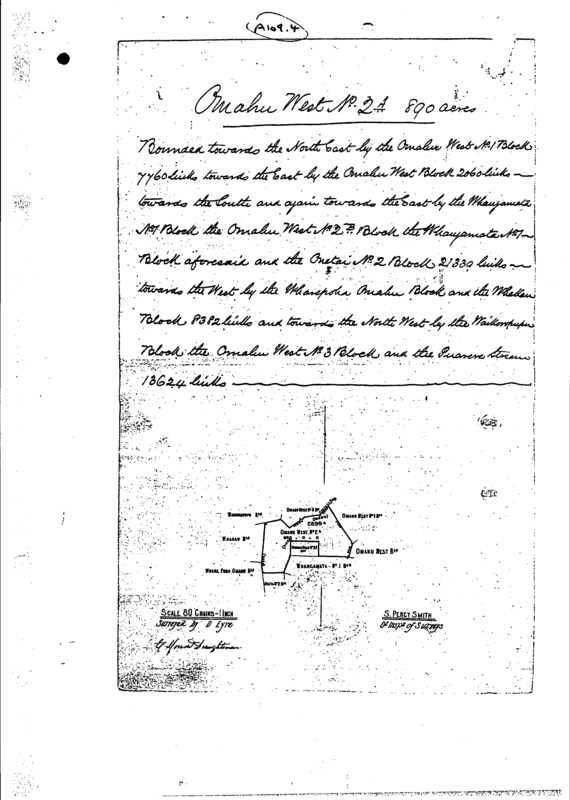 A109.4
Omahu West No. 2A 890 acres
Bounded towards the North East by the Omahu West No 1 Block
7760 links towards the East by the Omahu West Block 2060 links —
towards the South and again towards the East by the Whangamata
No 1 Block the Omahu West No 2B Block the Whangamata No 1 —
Block aforesaid and the Onetai No 2 Block 21339 links —
towards the West by the Wharepoha Omahu Block and the Whakau
Block 8382 links and towards the North West by the Waikoropupu
Block the Omahu West No 3 Block and the Puarere Stream
13624 links
Omahu West No 3 Bk
Omahu West No 1 Bk
Omahu West No 2A
Whakau Bk
Omahu West Bk
Whangamata No 1 Bk
Whare Poha Omahu Bk
Scale 80 Chains = 1 Inch
Surveyed by D Eyre
S. Percy Smith
Draughtsman